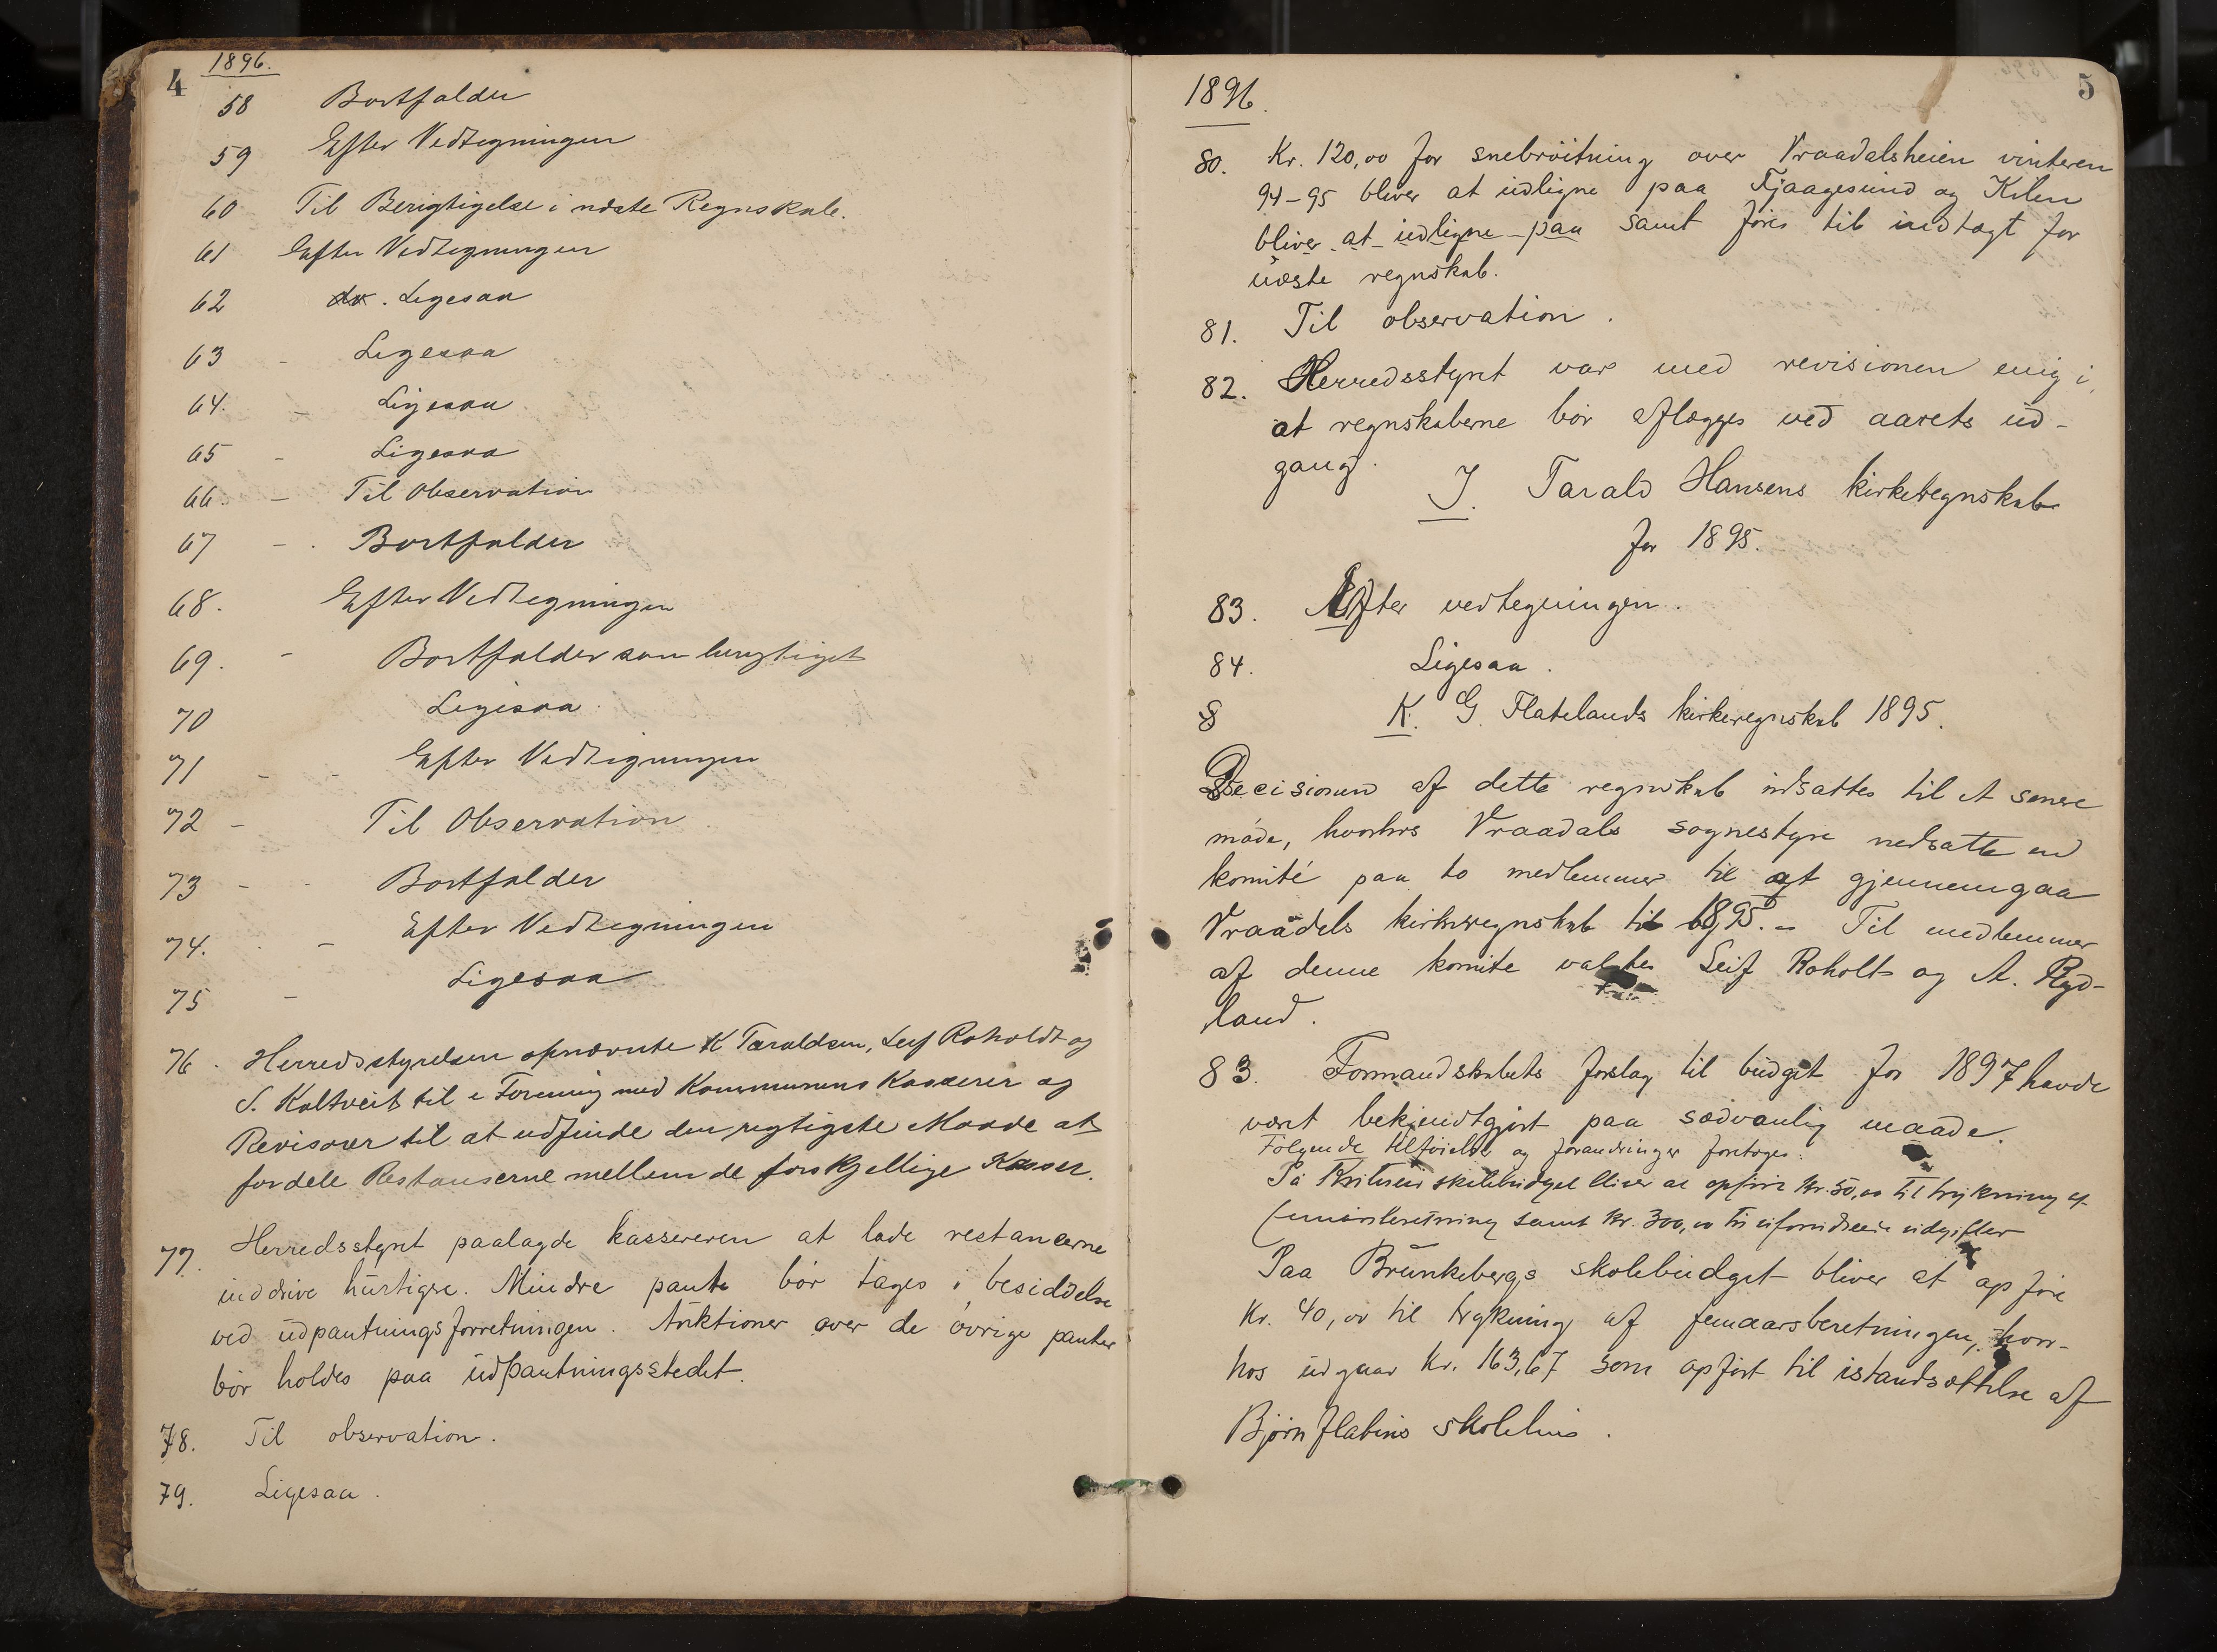 4
1896.
58 Bortfalder
59 Efter Vedtegningen
60 Til Berigtigelse i næste Regnskab.
61 Efter Vedtegningen
62 do. Ligesaa
63 - Ligesaa
64. - Ligesaa
65 - Ligesaa
66. - Til Observation
67 - . Bortfalder
68. Efter Vedtegningen
69. - Bortfalder som berigtiget
70 Ligesaa.
71 - - Efter Vedtegningen
72 - Til Observation
73 - - Bortfalder
74. - Efter Vedtegningen
75 - Ligesaa
76. Herredsstyrelsen opnævnte K Taraldsen, Leif Roholdt og
S. Kaltveit til i Forening med Kommunens Kasserer og
Revisorer til at udfinde den rigtigste Maade at
fordele Restanserne mellem de forskjellige Kasser.
77. Herredsstyret paalagde kassereren at lade restancerne
inddrive hurtigere. Mindre pante bör tages i besiddelse
ved udpantningsforretningen. Auktioner over de övrige panter
bör holdes paa udpantningsstedet.
78. Til observation.
79. Ligesaa.
5
1896.
80. Kr. 120,00 for snebröitning over Vraadalsheien vinteren
94-95 bliver at udligne paa Fjaagesund og Kilen
bliver at udligne paa samt föres til indtægt for
næste regnskab.
81. Til observation.
82. Herredsstyret var med revisionen enig i,
at regnskaberne bör aflægges ved aarets ud-
gang.
J. Tarald Hansens kirkeregnskab
for 1895.
83. Efter vedtegningen.
84. Ligesaa.
8 K. G. Flatelands kirkeregnskab 1895.
Decisionen af dette regnskab udsattes til et senere
möde, hvorhos Vraadals sognestyre nedsatte en
komité paa to medlemmer til at gjennemgaa
Vraadals kirkeregnskab til 1895. - Til medlemmer
af denne komite valgtes Leif Roholt og A. Ryd-
land.
83. Formandskabets forslag til budget for 1897 havde
været bekjendtgjort paa sædvanlig maade.
Følgende tilføielse og forandringer foretoges:
På skolebudget bliver at opføre kr. 50,00 til trykning af
femårsberetning samt kr. 300,00 til uforudseede udgifter
Paa Brunkebergs skolebudget bliver at opföre
kr. 40,00 til trykning af femaarsberetningen, hvor-
hos udgaar kr. 163,67 som opfört til istandsættelse af
Björnflatins skolehus.